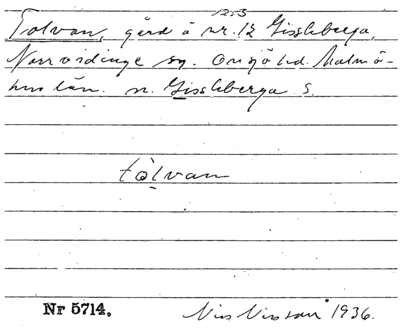 1253
Tolvan, gård å nr. 12 Gissleberga,
Norrvidinge sn. Onsjö hd. Malmö-
hus län. n. Gissleberga S.
tòlvan
Nr 5714. Nils Nilsson 1936.